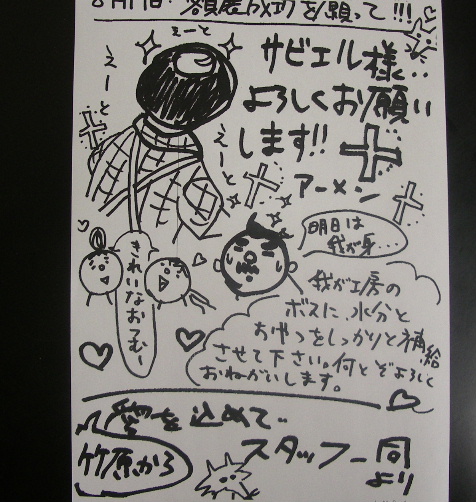 8月1日・額展成功を願って!!!
えーと
えーと
えーと
サビエル様…
よろしくお願い
します!!
アーメン
明日は
我が身…
きれいなおてむー
我が工房の
ボスに、水分と
おやつをしっかりと補給
させて下さい。何とぞよろしく
おねがいします。
愛を込めて…
竹原から
スタッフ一同
より